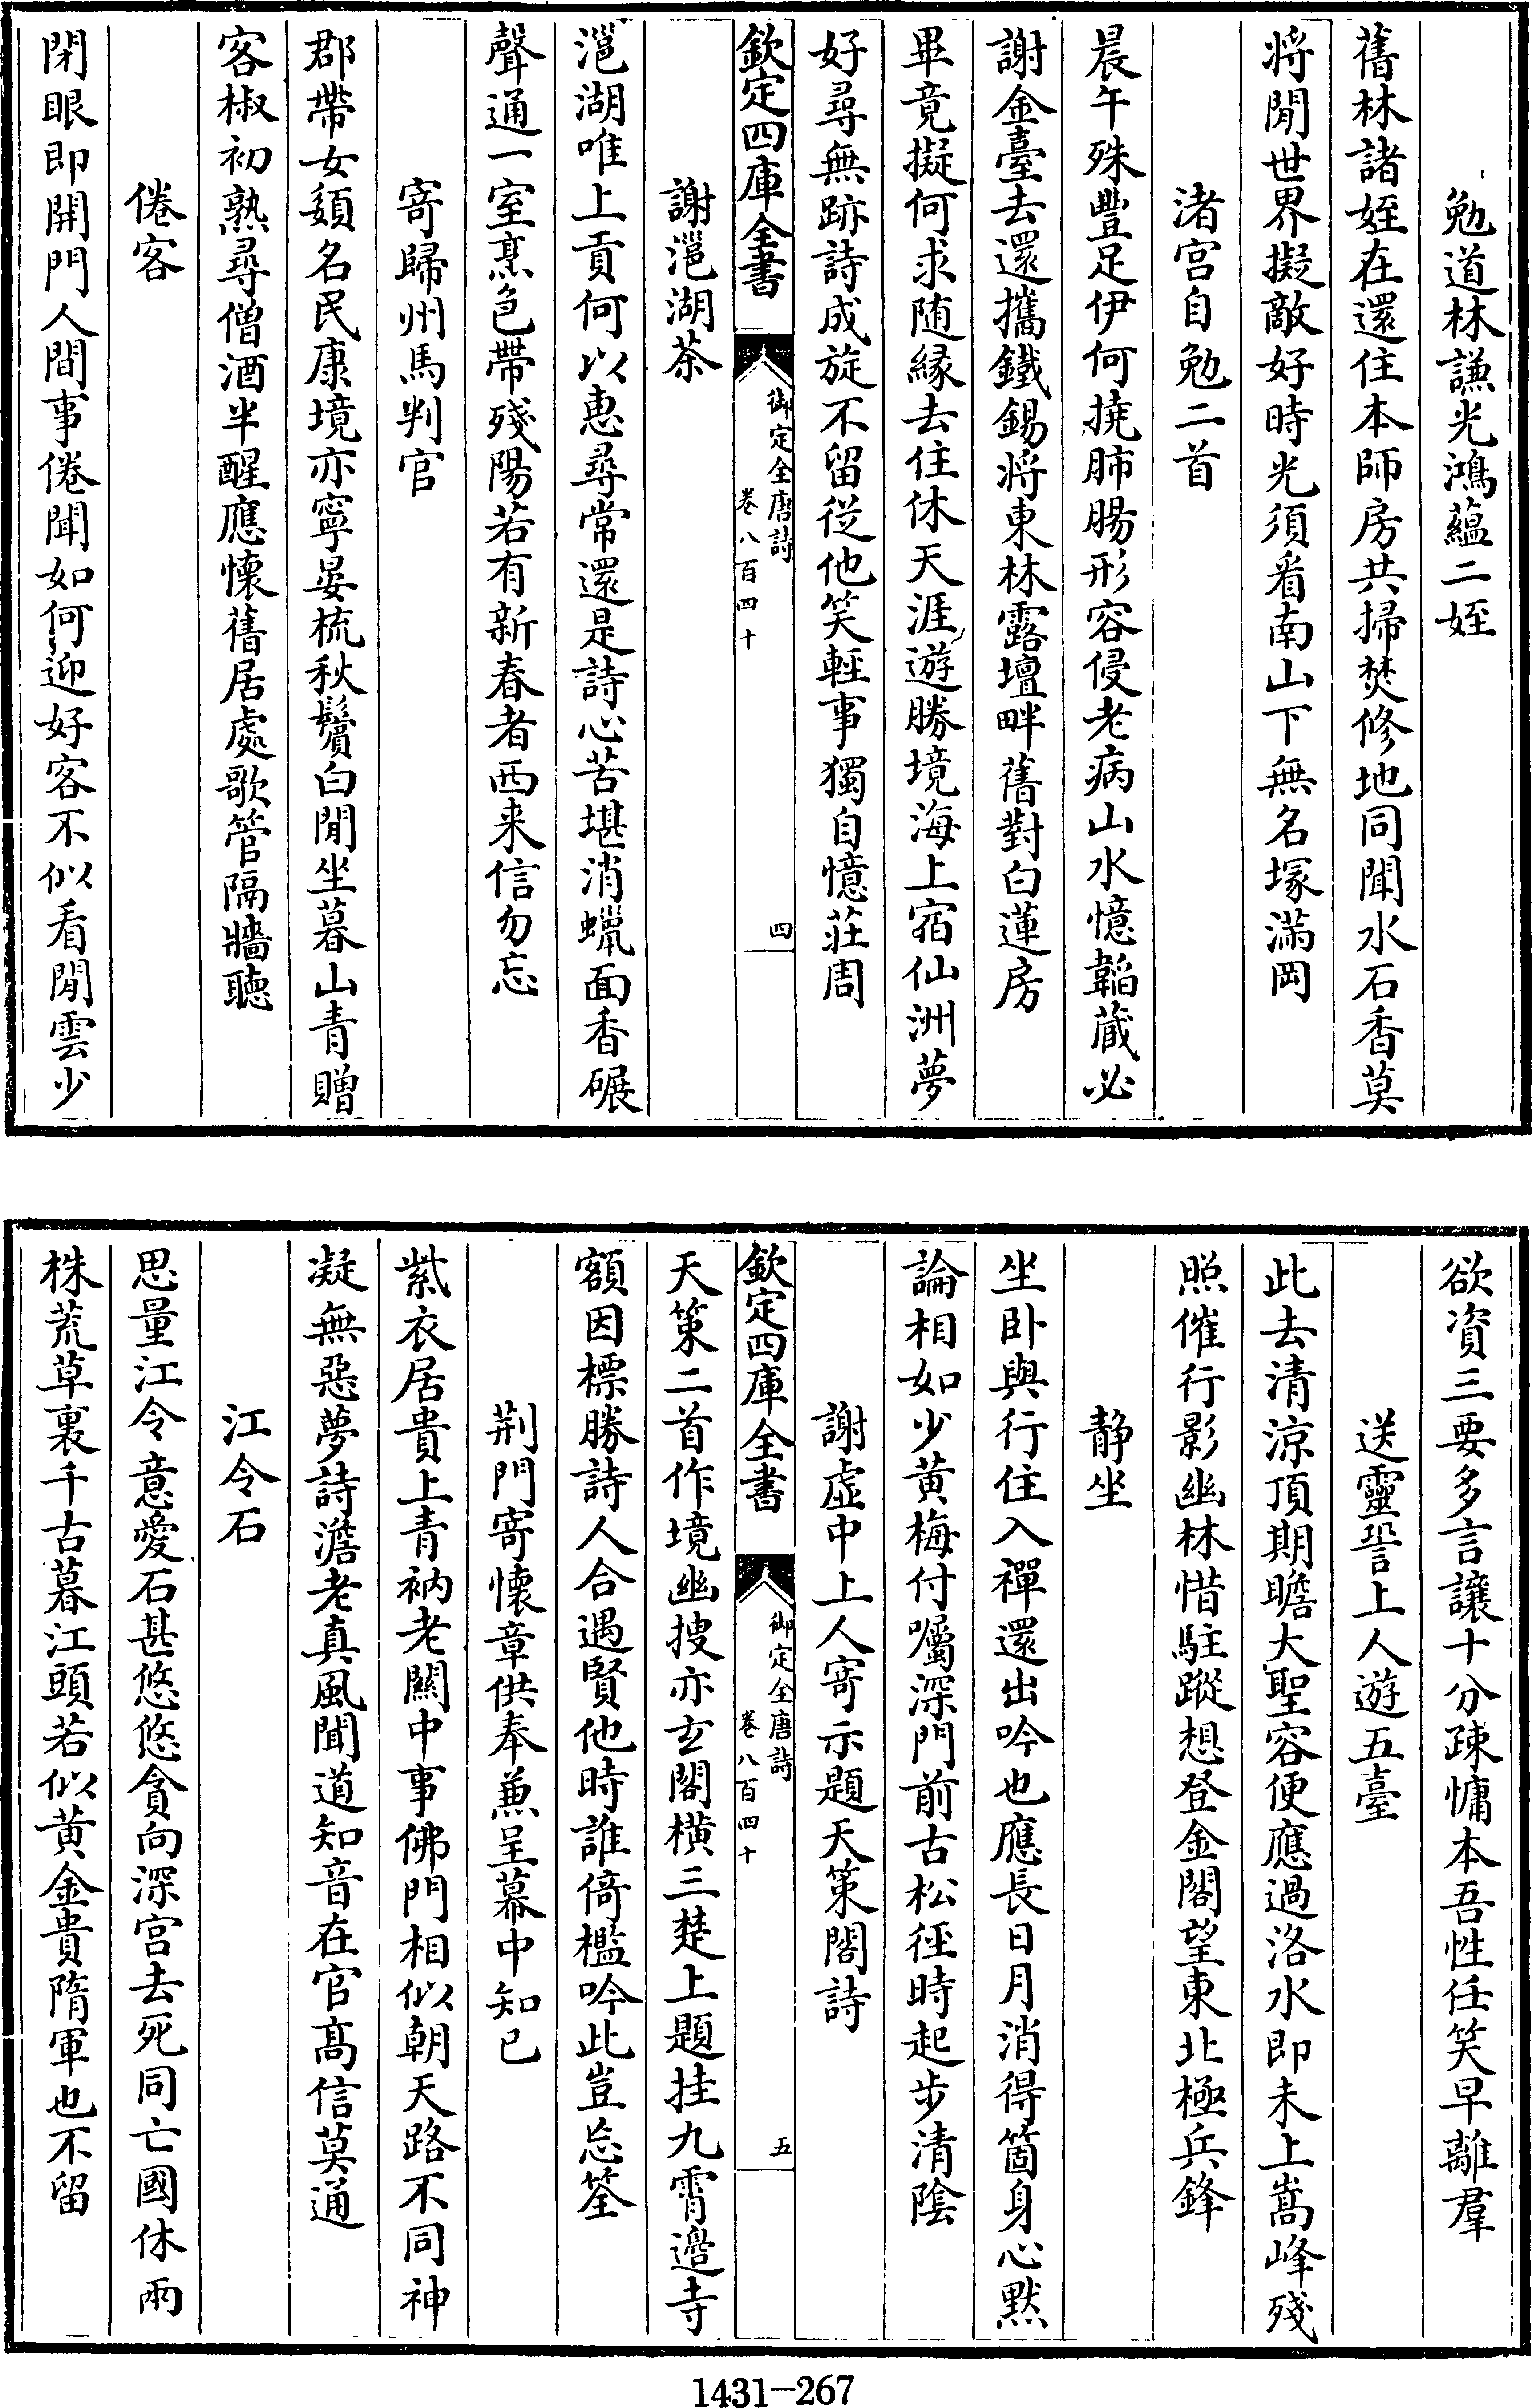 勉道林謙光鴻藴二姪
舊林諸姪在還住本師房共掃焚修地同聞水石香莫
將閒世界擬敵好時光須看南山下無名塚滿岡
渚宫自勉二首
晨午殊豐足伊何撓肺腸形容侵老病山水憶韜藏必
謝金臺去還攜鐵錫將東林露壇畔舊對白蓮房
畢竟擬何求随緣去住休天涯遊勝境海上宿仙洲夢
好尋無跡詩成旋不留從他笑輕事獨自憶莊周
欽定四庫全書
御定全唐詩
卷八百四十
四
謝㴩湖茶
㴩湖唯上貢何以惠尋常還是詩心苦堪消蠟面香碾
聲通一室烹色帶殘陽若有新春者西来信勿忘
寄歸州馬判官
郡帶女嬃名民康境亦寧晏梳秋鬢白閒坐暮山青贈
客椒初熟尋僧酒半醒應懷舊居處歌管隔牆聽
倦客
閉眼即開門人間事倦聞如何迎好客不似看閒雲少
欲資三要多言讓十分疎慵本吾性任笑早離羣
送靈㫰上人遊五臺
此去清涼頂期瞻大聖容便應過洛水即未上嵩峰殘
照催行影幽林惜駐蹤想登金閣望東北極兵鋒
静坐
坐卧與行住入禪還出吟也應長日月消得箇身心黙
論相如少黄梅付囑深門前古松徑時起步清陰
謝虚中上人寄示題天策閣詩
欽定四庫全書
御定全唐詩
卷八百四十
五
天策二首作境幽搜亦玄閣横三楚上題挂九霄邉寺
額因標勝詩人合遇賢他時誰倚檻吟此豈忘筌
荆門寄懷章供奉兼呈幕中知已
紫衣居貴上青衲老關中事佛門相似朝天路不同神
凝無惡夢詩澹老真風聞道知音在官髙信莫通
江令石
思量江令意愛石甚悠悠貪向深宫去死同亡國休兩
株荒草裏千古暮江頭若似黄金貴隋軍也不留
1431-267